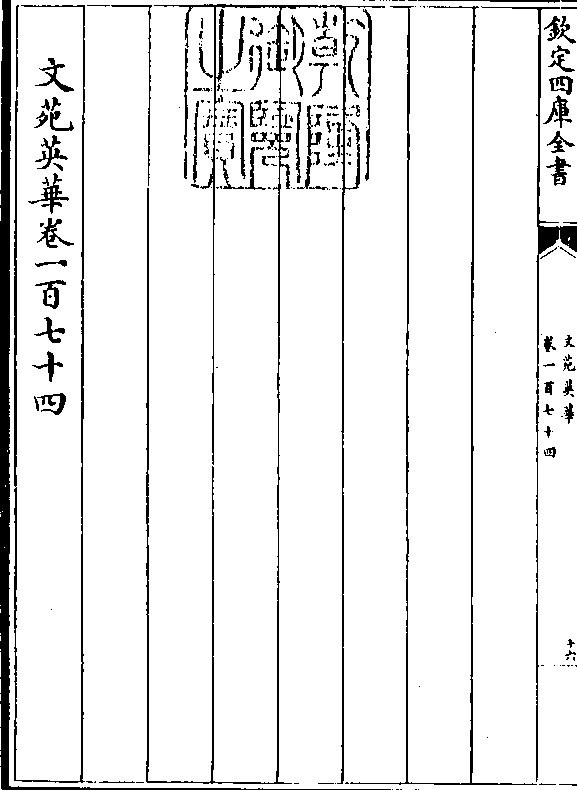 欽定四庫全書
文苑英華
卷一百七十四
十六
乾隆御覽之寶
文苑英華卷一百七十四